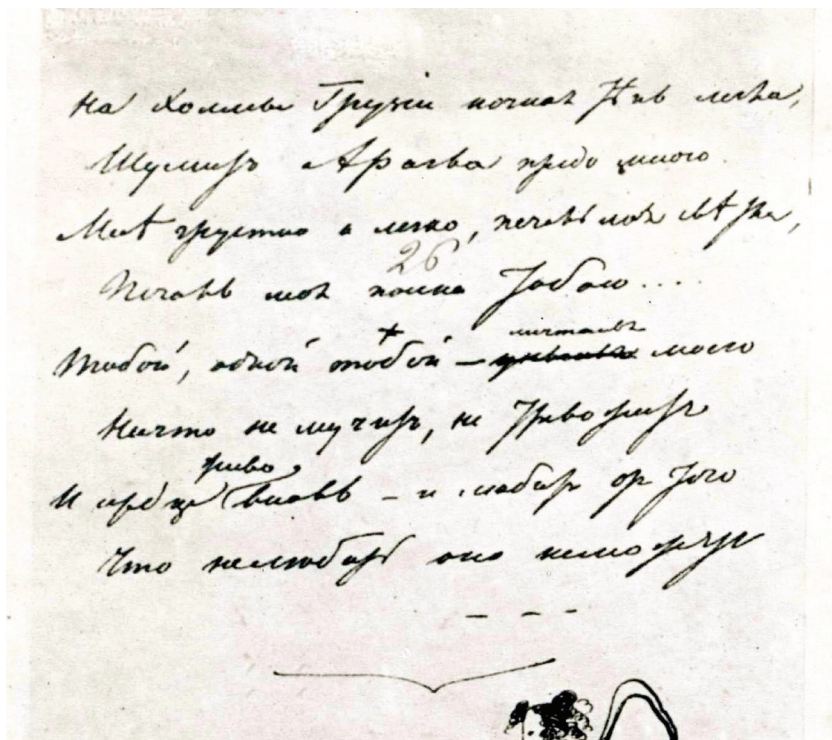 На холмы Грузіи ночная тѣнь легла,
Шумитъ Арагва предо мною.
Мнѣ грустно и легко, печаль моя свѣтла,
26
Печаль моя полна тобою....
Тобой, одной тобой — унынья моего
Ничто не мучитъ, не тревожитъ
И сердце вновь — и любит от того
Что нелюбить оно неможетъ